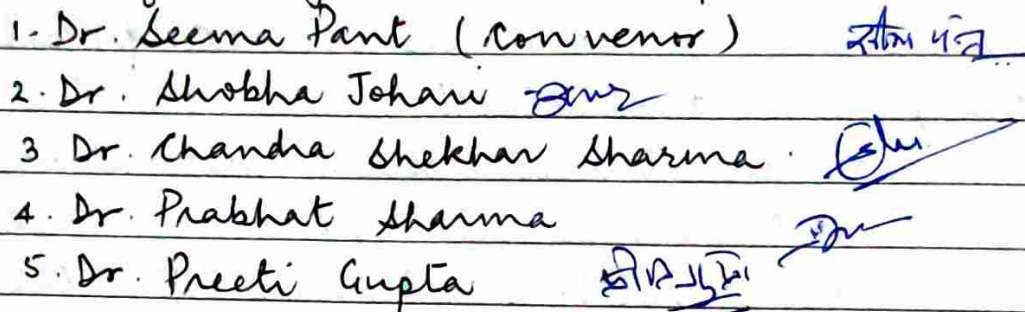 1. Dr. Seema Pant (Convenor) सीमा पंत
2. Dr. Shobha Johari
3 Dr. Chandra Shekhar Sharma.
4. Dr. Prabhat Sharma
5. Dr. Preeti Gupta प्रीति गुप्ता